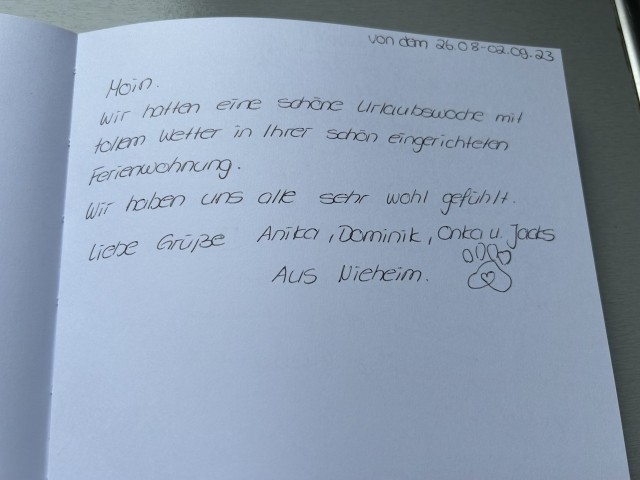 von dem 26.08-02.09.23
Moin.
Wir hatten eine schöne Urlaubswoche mit
tollem Wetter in Ihrer schön eingerichteten
Ferienwohnung.
Wir haben uns alle sehr wohl gefühlt.
Liebe Grüße Anika, Dominik, Onka u. Jacks
Aus Nieheim.